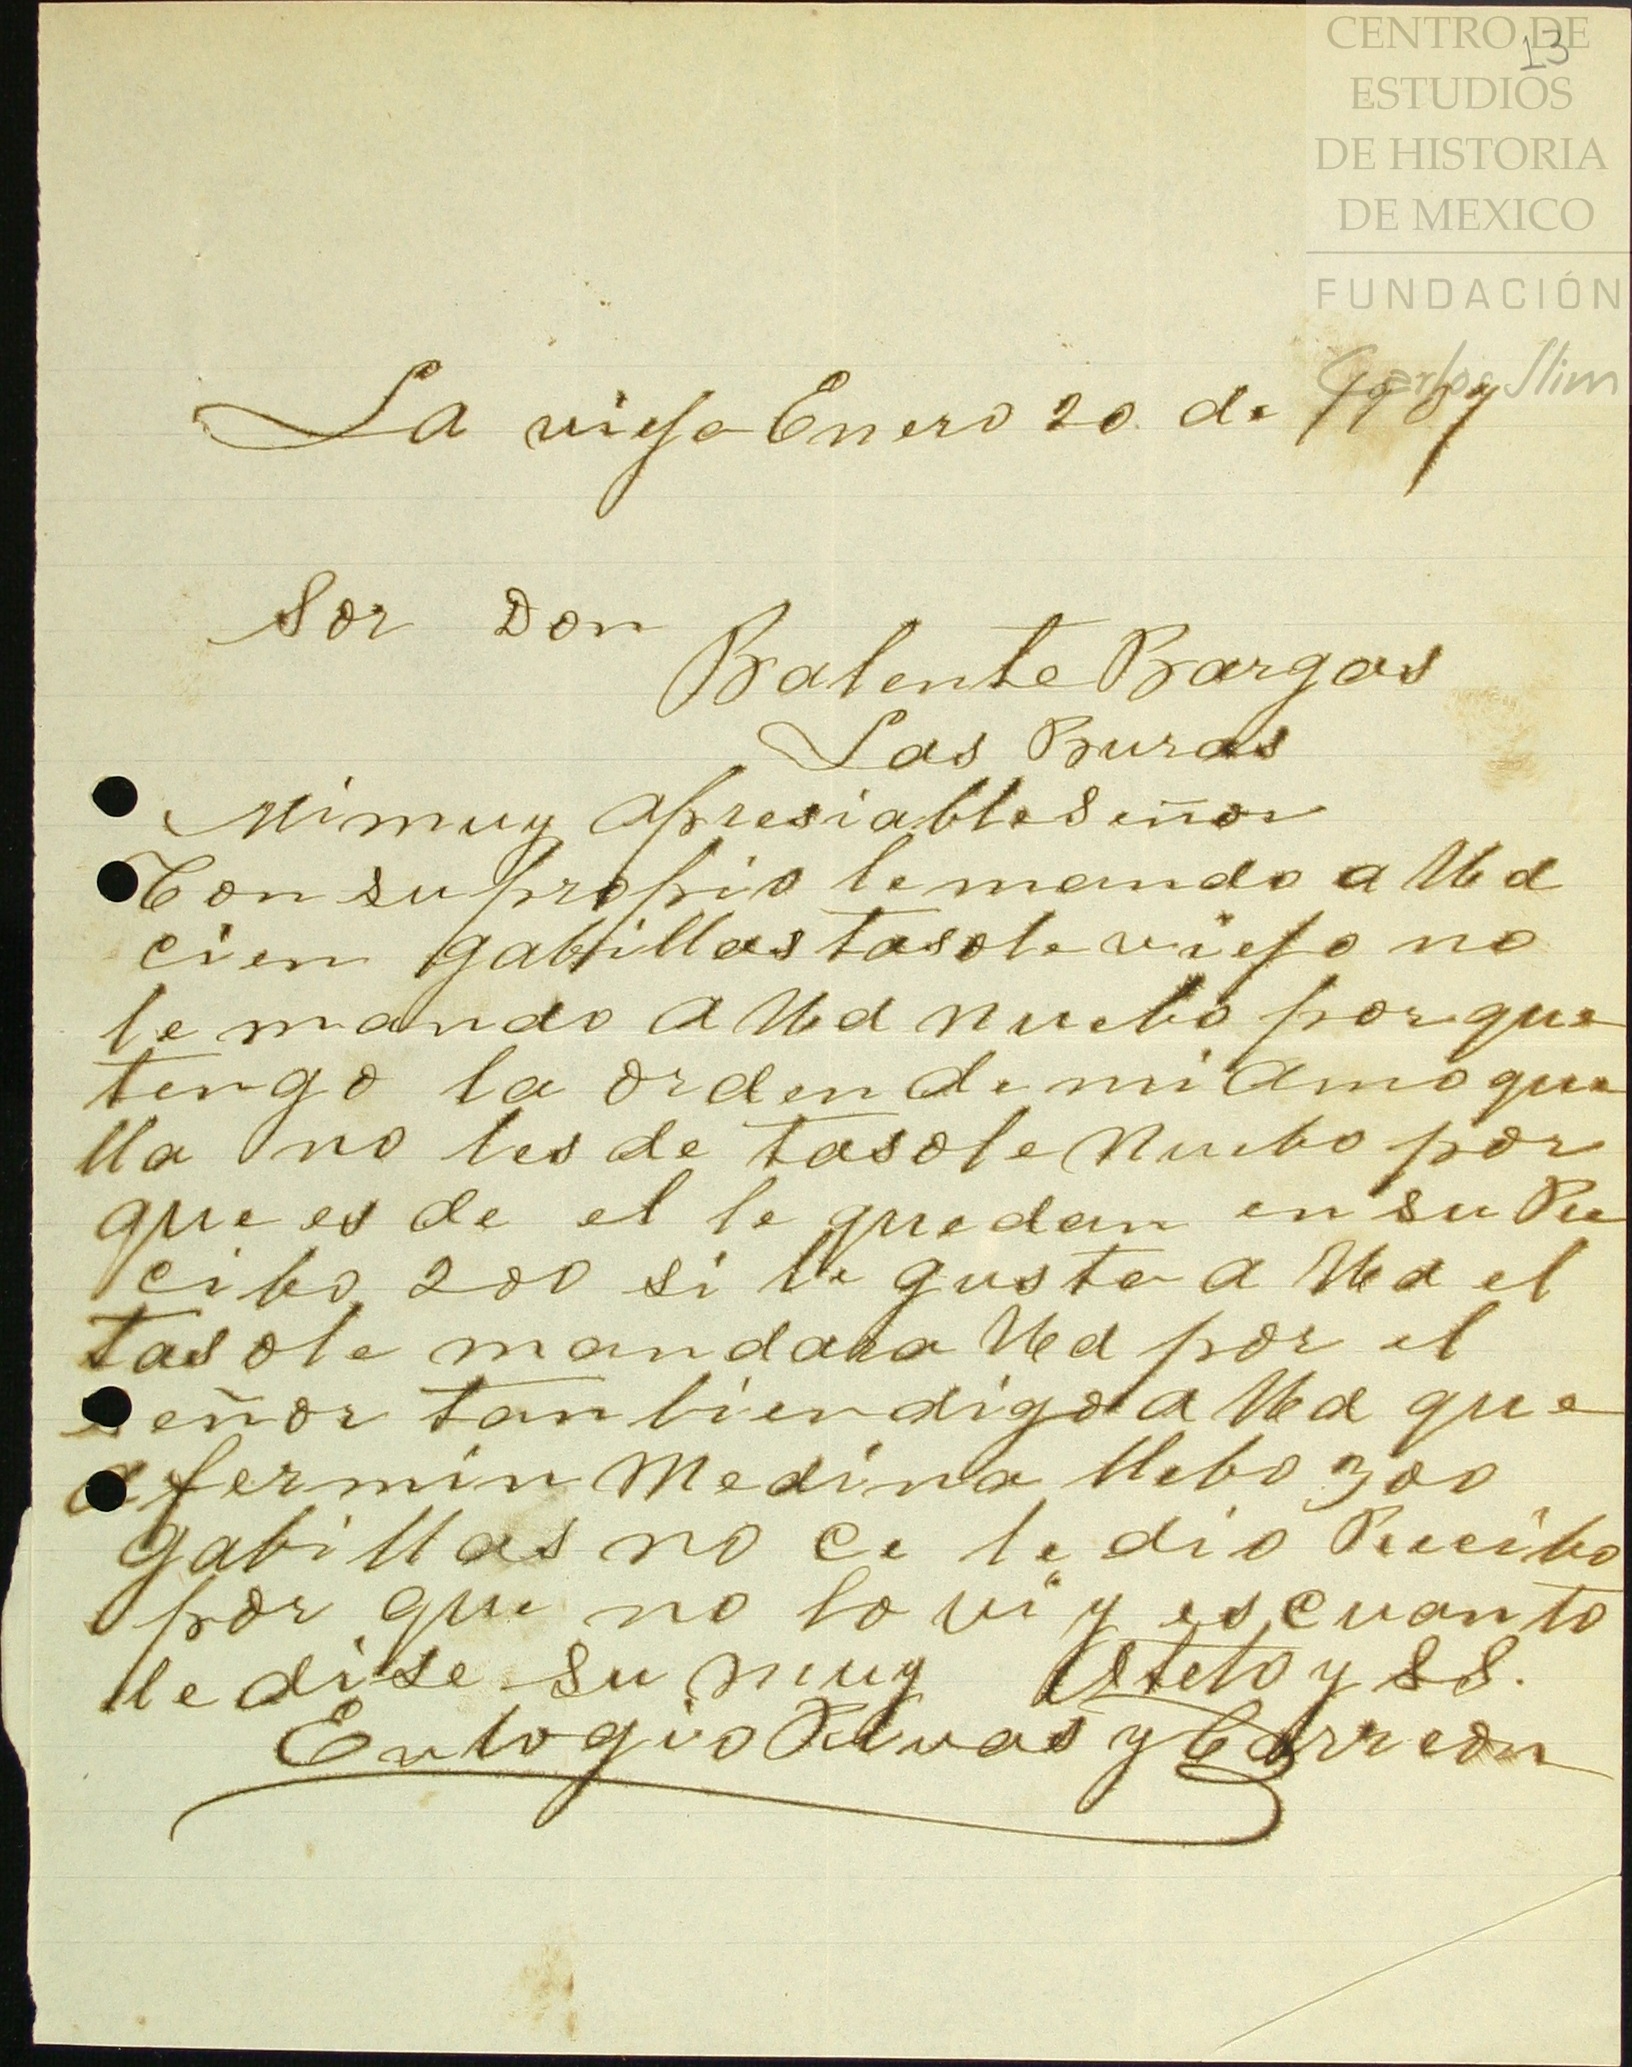 CENTRO DE
ESTUDIOS
DE HISTORIA
DE MEXICO
FUNDACIÓN
Carlos Slim
13
La viejo Enero 20 de 1907
Sor Don
Balente Bargas
Las Buras
Mi muy apresiable Señor
Con su propio le mando a Ud
cien gabillas tasole viejo no
le mando a Ud nuebo porque
tengo la orden de mi amo que
lla no les de tasole nuebo por
que es de el le quedan en su Re
cibo 200 si le gusta a Ud el
tasole mandara Ud por el
señor tanbien digo a Ud que
a fermin Medina llebo 300
gabillas no ce le dio Recibo
por que no lo vi y es cuanto
le dise su muy y SS.
Eulogio Rivas y Carreon